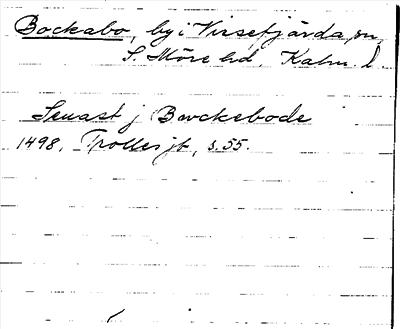 Bockabo, by i Vissefjärda sn,
S. Möre hd, Kalm. l.
Senast j Bockebode
1498, Trolles jb, s. 55.